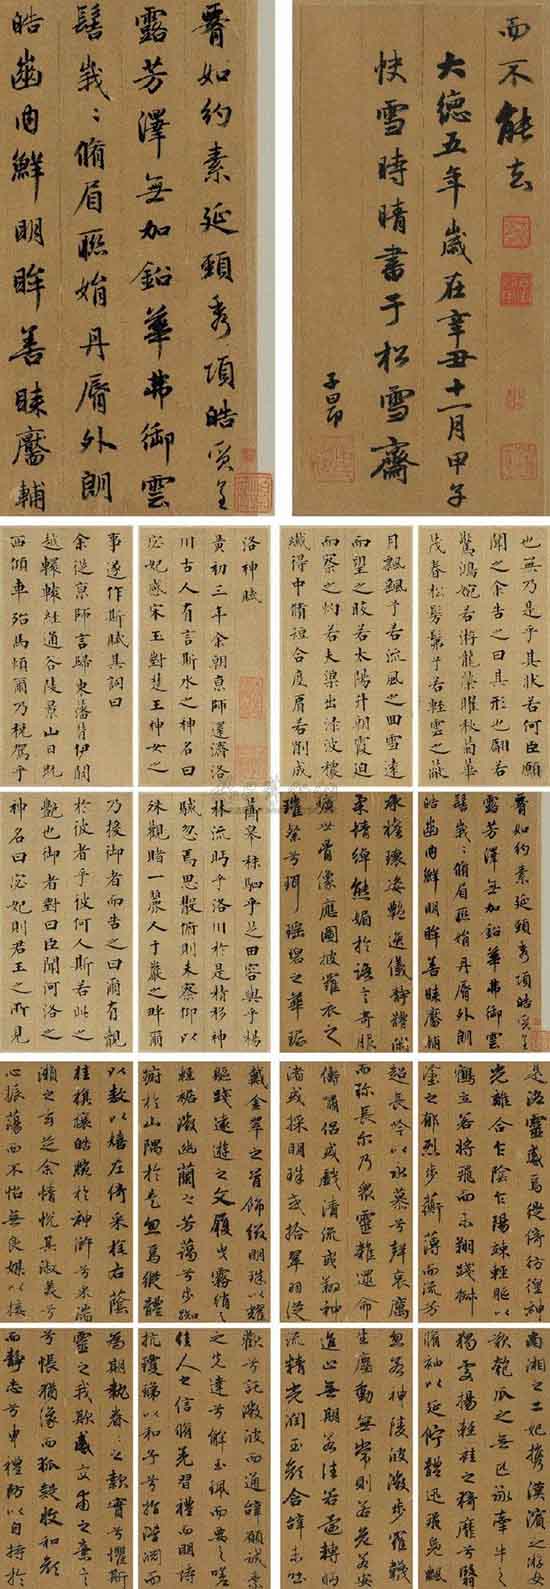 而不能去
大德五年歲在辛丑十一月甲子
快雪時晴書于松雪齋
子昂
如約素延頸秀項皓質呈
露芳澤無加鉛華弗御雲
髻峩〻脩眉聯娟丹脣外朗
皓齒内鮮明眸善睞靨輔
洛神賦
黄初三年余朝京師還濟洛
川古人有言斯水之神名曰
宓妃感宋玉對楚王神女之
事遂作斯賦其詞曰
余從京師言歸東藩背伊闕
越轘轅經通谷陵景山日既
西傾車殆馬煩爾乃税駕乎
蘅皋秣駟乎芝田容與乎楊
林流眄乎洛川於是精移神
駭忽焉思散俯則未察仰以
殊觀睹一麗人于巖之畔爾
乃援御者而告之曰爾有覿
於彼者乎彼何人斯若此之
豔也御者對曰臣聞河洛之
神名曰宓妃則君王之所見
也無乃是乎其狀若何臣願
聞之余告之曰其形也翩若
驚鴻婉若游龍榮曜秋菊華
茂春松髣髴乎若輕雲之蔽
月飄飖乎若流風之迴雪遠
而望之皎若太陽升朝霞迫
而察之灼若夫蕖出渌波穠
纖得中脩短合度肩若削成
如約素延頸秀項皓質呈
露芳澤無加鉛華弗御雲
髻峩〻脩眉聯娟丹脣外朗
皓齒内鮮明眸善睞靨輔
承權瓌姿艷逸儀静體閑
柔情綽態媚於語言奇服
曠世骨像應圖披羅衣之
璀粲兮珥瑶碧之華琚
戴金翠之首飾綴明珠以耀
軀踐遠遊之文履曳霧綃之
輕裾微幽蘭之芳藹兮步踟
蹰於山隅於是忽焉縱體
以敖以嬉左倚采旄右蔭
桂旗攘皓腕於神滸兮采湍
瀨之玄芝余情悦其淑美兮
心振蕩而不怡無良媒以接
歡兮託微波而通辭願誠素
之先達兮解玉珮而要之嗟
佳人之信脩羌習禮而明詩
抗瓊珶以和予兮指潛淵而
爲期執眷〻之款實兮懼斯
靈之我欺感交甫之棄言
兮悵猶豫而狐疑收和顔
而静志兮申禮防以自持於
是洛靈感焉徙倚彷徨神
光離合乍陰乍陽竦輕軀以
鶴立若將飛而未翔踐椒
塗之郁烈步蘅薄而流芳
超長吟以永慕兮聲哀厲
而彌長爾乃衆靈雜遝命
儔嘯侣或戲清流或翔神
渚或採明珠或拾翠羽從
南湘之二妃攜漢濱之游女
歎匏瓜之無匹詠牽牛之
獨處揚輕袿之猗靡兮翳
脩袖以延佇體迅飛鳧飄
忽若神陵波微步羅韈
生塵動無常則若危若安
進止無期若往若還轉眄
流精光潤玉顔含辭未吐